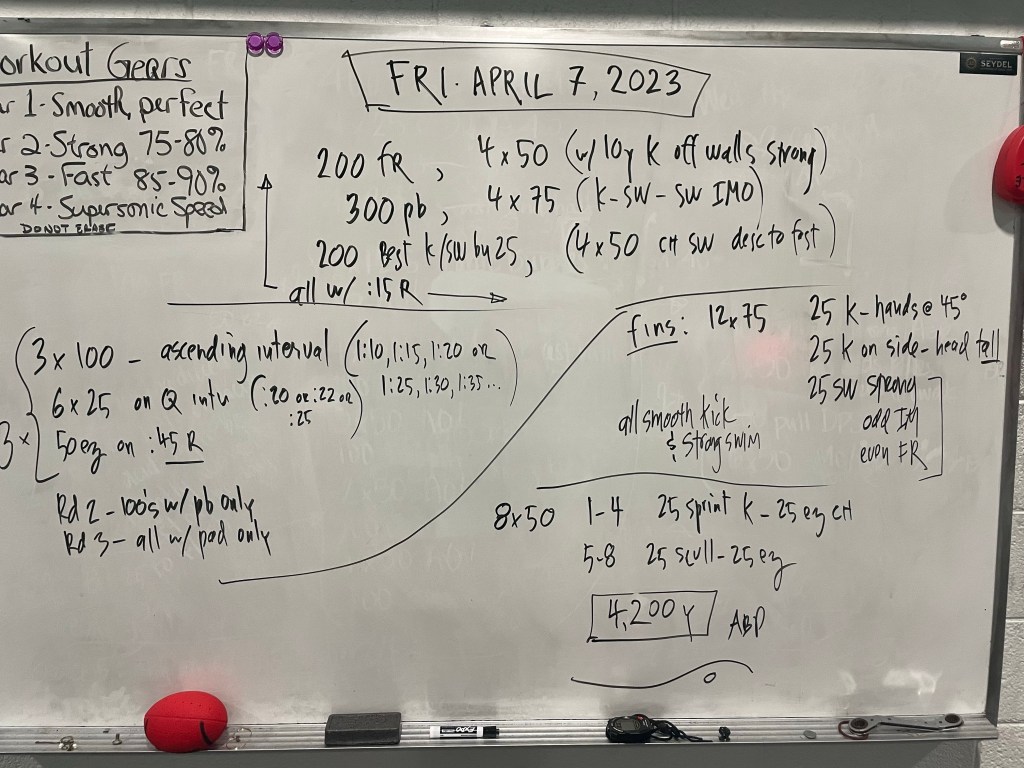 orkout Gears
ar 1 - Smooth, perfect
r 2 - Strong 75-80%
ar 3 - Fast 85-90%
ar 4 - Supersonic Speed
DO NOT ERASE
SEYDEL
FRI. APRIL 7, 2023
200 fR, 4 x 50 (w/ 10y K off walls strong)
300 pb, 4 x 75 (K - SW - SW IMO)
200 Best K/SW by 25, (4 x 50 CH SW desc to fast)
all w/ :15 R
3 x
3 x 100 - ascending interval (1:10, 1:15, 1:20 or
1:25, 1:30, 1:35...)
6 x 25 on Q intv (:20 or :22 or
:25)
50 ez on :45 R
Rd 2 - 100's w/ pb only
Rd 3 - all w/ pad only
fins: 12x75 25 K - hands @ 45°
25 K on side - head tall
25 SW
odd IM
even FR
all smooth kick
& strong swim
8x50 1-4 25 sprint K - 25 ez CH
5-8 25 scull - 25 ez
4,200 Y ABP
EXPO